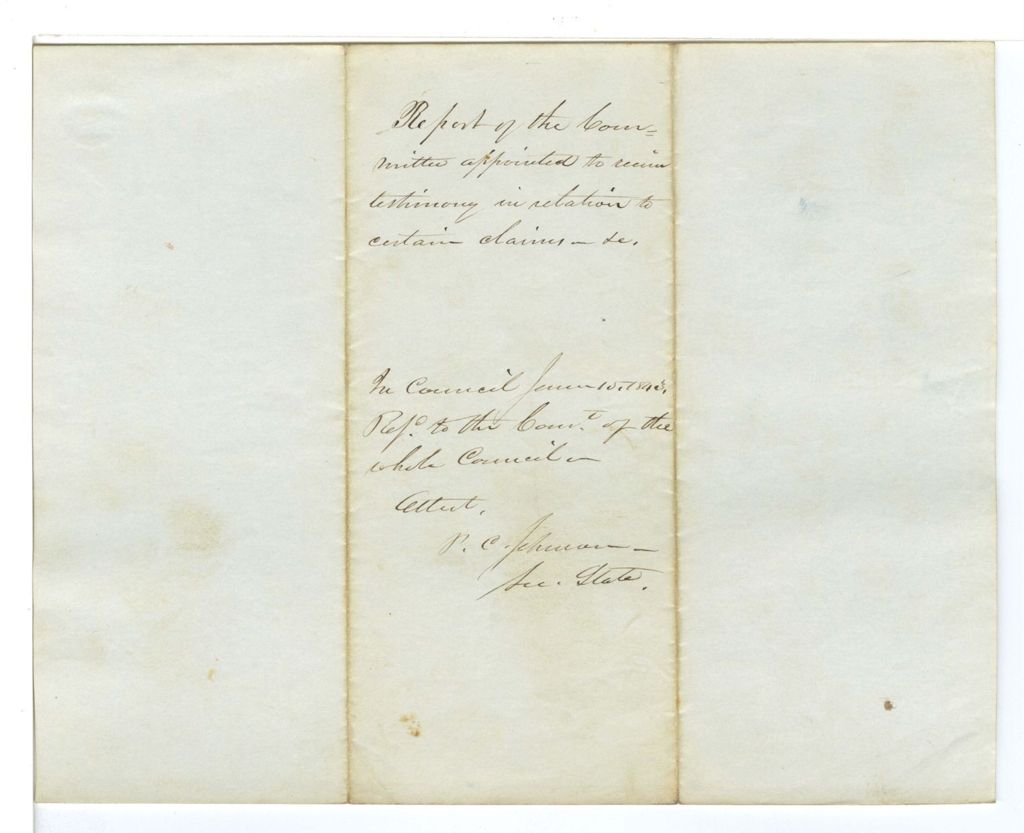 Report of the Com=
mittee appointed to receive
testimony in relation to
certain claims – &c.
In Council June 10. 1843.
Refd. to the Comte. of the
whole Council –
Attest.
P. C. Johnson –
Sec. State.